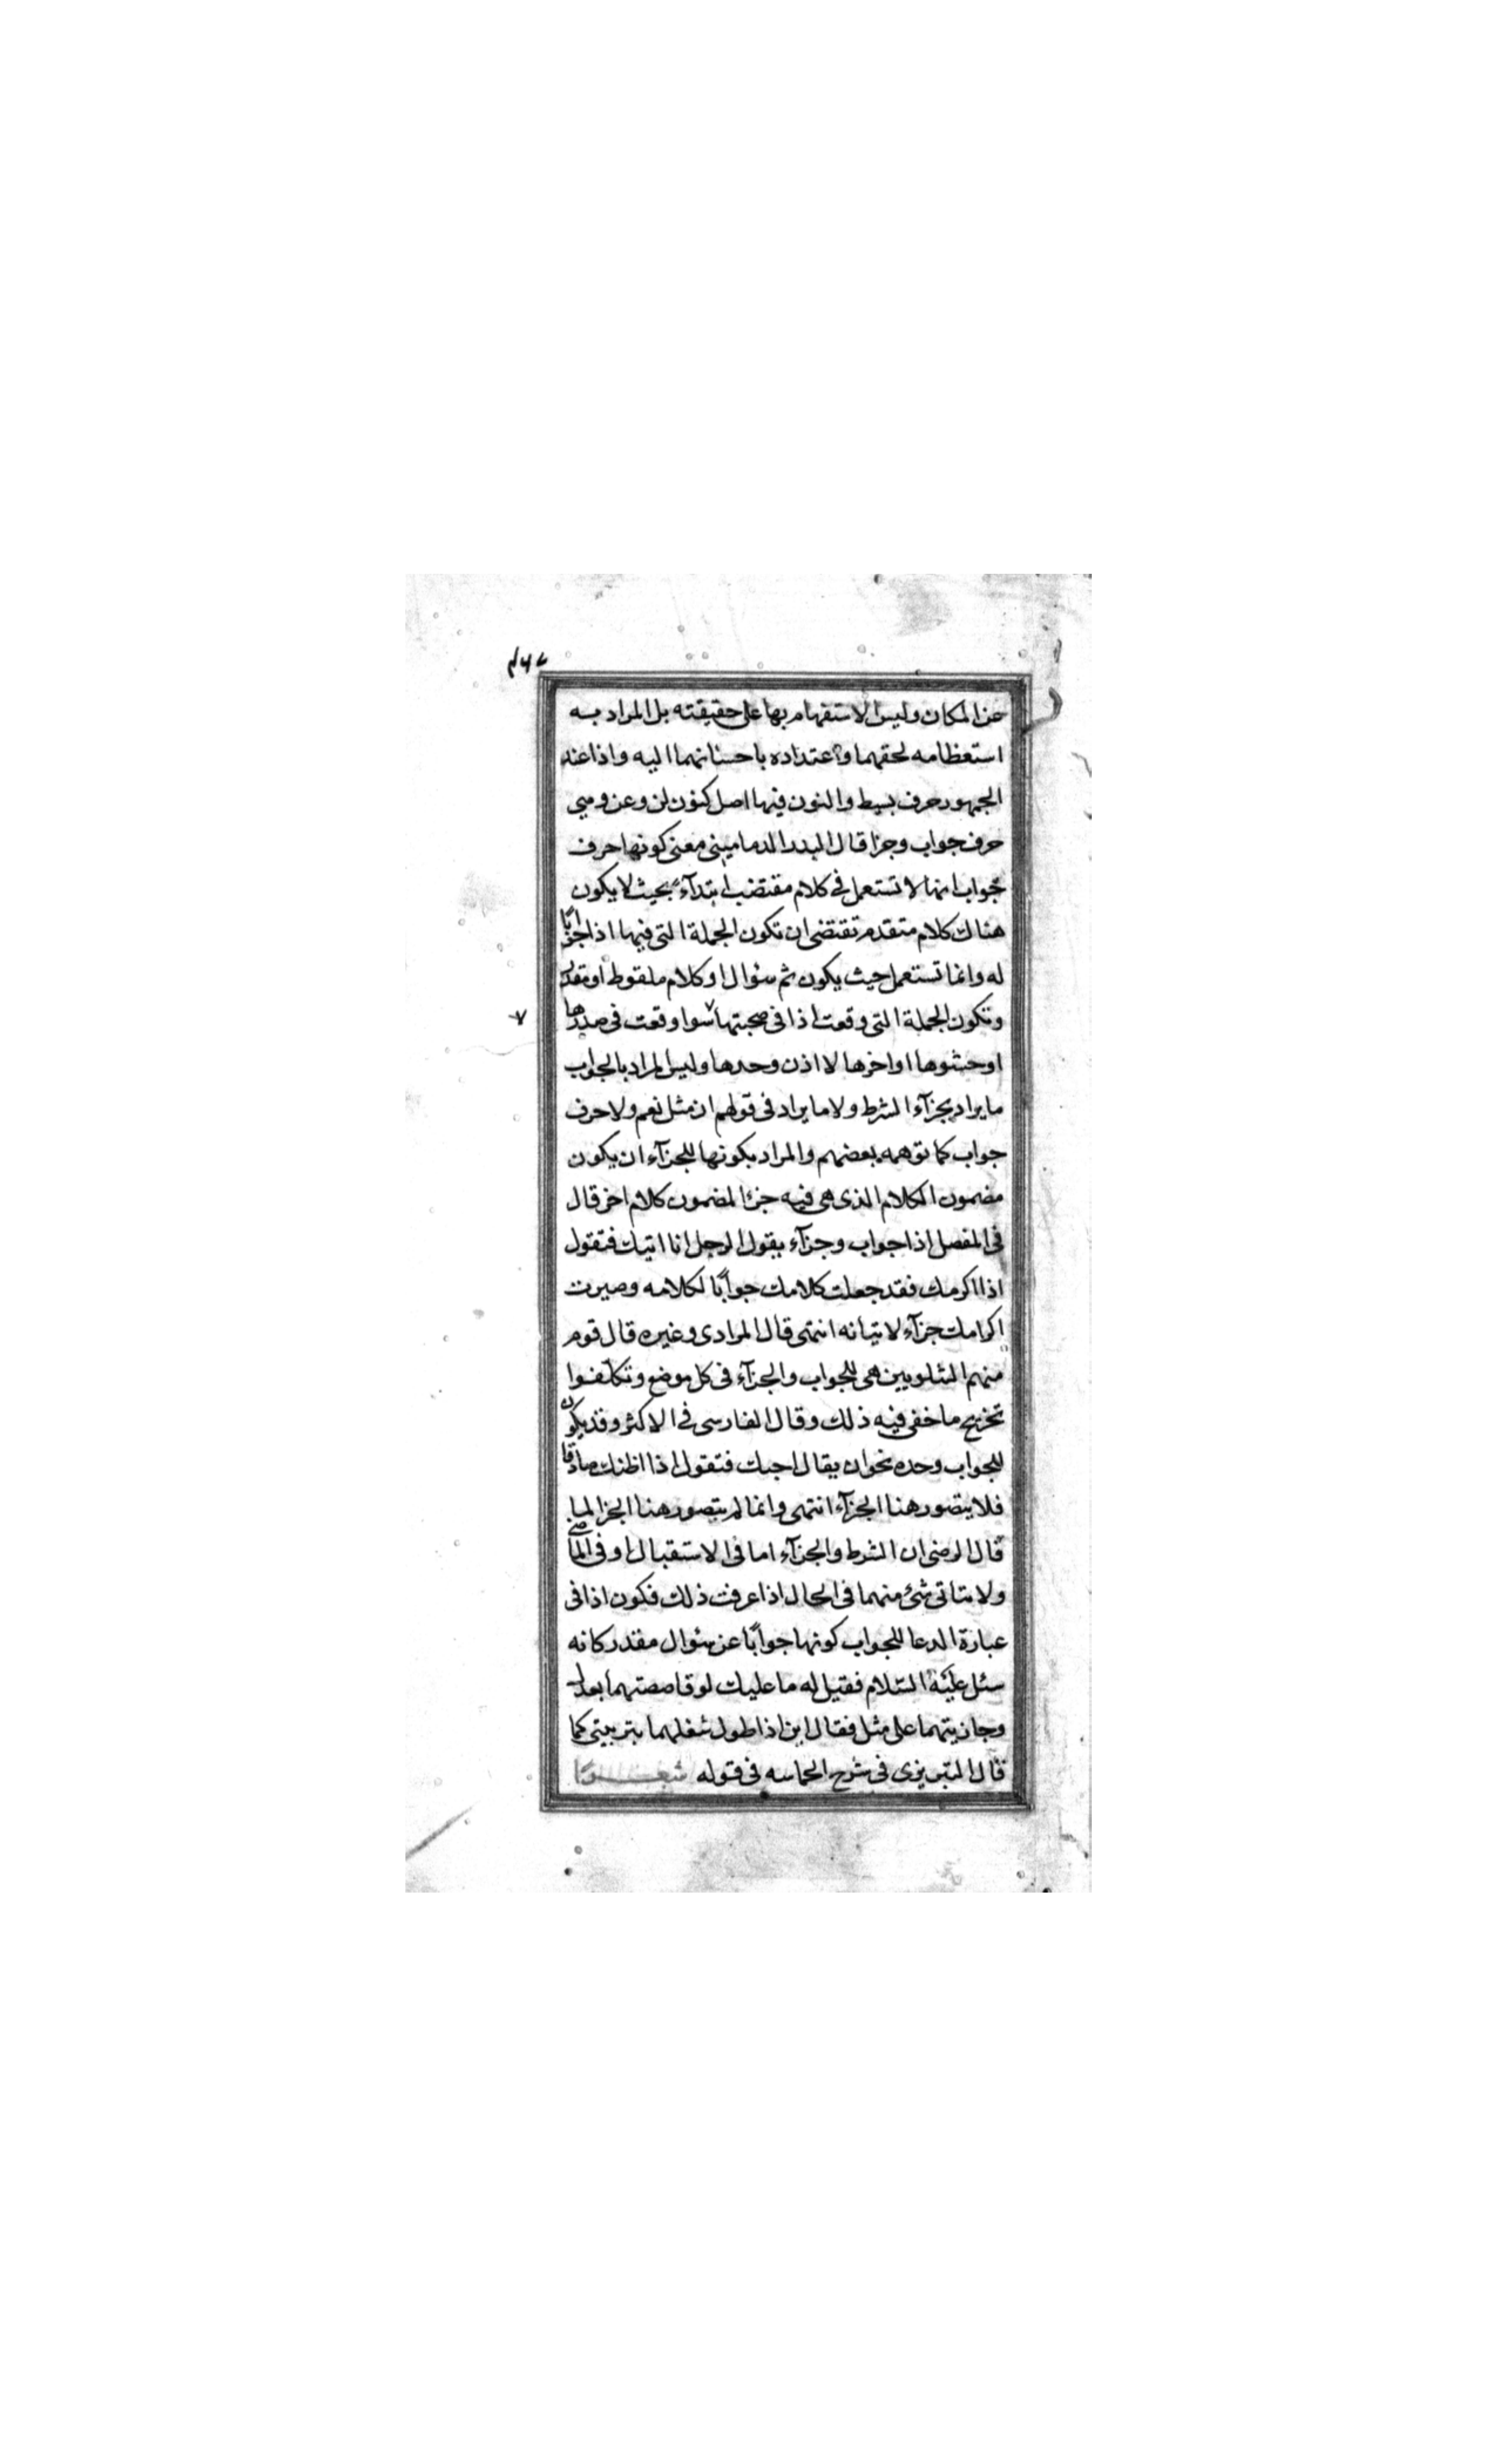 ٤٦٧
عن المكان وليس الاستفهام بها على حقيقته بل المراد به
استعظامه لحقهما واعتداده باحسنانهما اليه واذا عند
الجمهور حرف بسيط والنون فيها اصل كنون لن وعن وهي
حرف جواب وجزا قال البدر الدماميني معنى كونها حرف
جواب انها لا تستعمل في كلام مقتضب ابتدآء بحيث لا يكون
هناك كلام متقدم تقتضي ان تكون الجملة التي فيها اذا جوابًا
له وانما تستعمل حيث يكون ثم سؤال او كلام ملفوظ او مقدر
وتكون الجملة التي وقعت اذا في صحبتها سوا وقعت في صدرها
او حشوها او اخرها لا اذن وحدها وليس المراد بالجواب
ما يراد بجزآء الشرط ولا ما يراد في قولهم ان مثل نعم ولا حرف
جواب كما توهمه بعضهم والمراد بكونها للجزآء ان يكون
مضمون الكلام الذي هي فيه جزا لمضمون كلام اخر قال
في المفصل اذا جواب وجزآء يقول الرجل انا اتيك فتقول
اذا اكرمك فقد جعلت كلامك جوابًا لكلامه وصيرت
اكرامك جزآء لاتيانه انتهى قال المرادي وغيره قال قوم
منهم الشلوبين هي للجواب والجزآء في كل موضع وتكلفوا
تخريج ما خفي فيه ذلك وقال الفارسي في الاكثر وقد يكون
للجواب وحده نحو ان يقال احبك فتقول اذا اظنك صادقا
فلا يتصور هنا الجزآء انتهى وانما لم يتصور هنا الجزا لما
قال الرضى ان الشرط والجزآء اما في الاستقبال او في الماضي
ولا يتاتى شئ منهما في الحال اذا عرفت ذلك فكون اذا في
عبارة الدعا للجواب كونها جوابًا عن سؤال مقدر كانه
سئل عليه السلام فقيل له ما عليك لو قاصصتهما بعدل
وجازيتهما على مثل فقال اين اذا طول شغلهما بتربيتي كما
قال التبريزى في شرح الحماسه في قوله